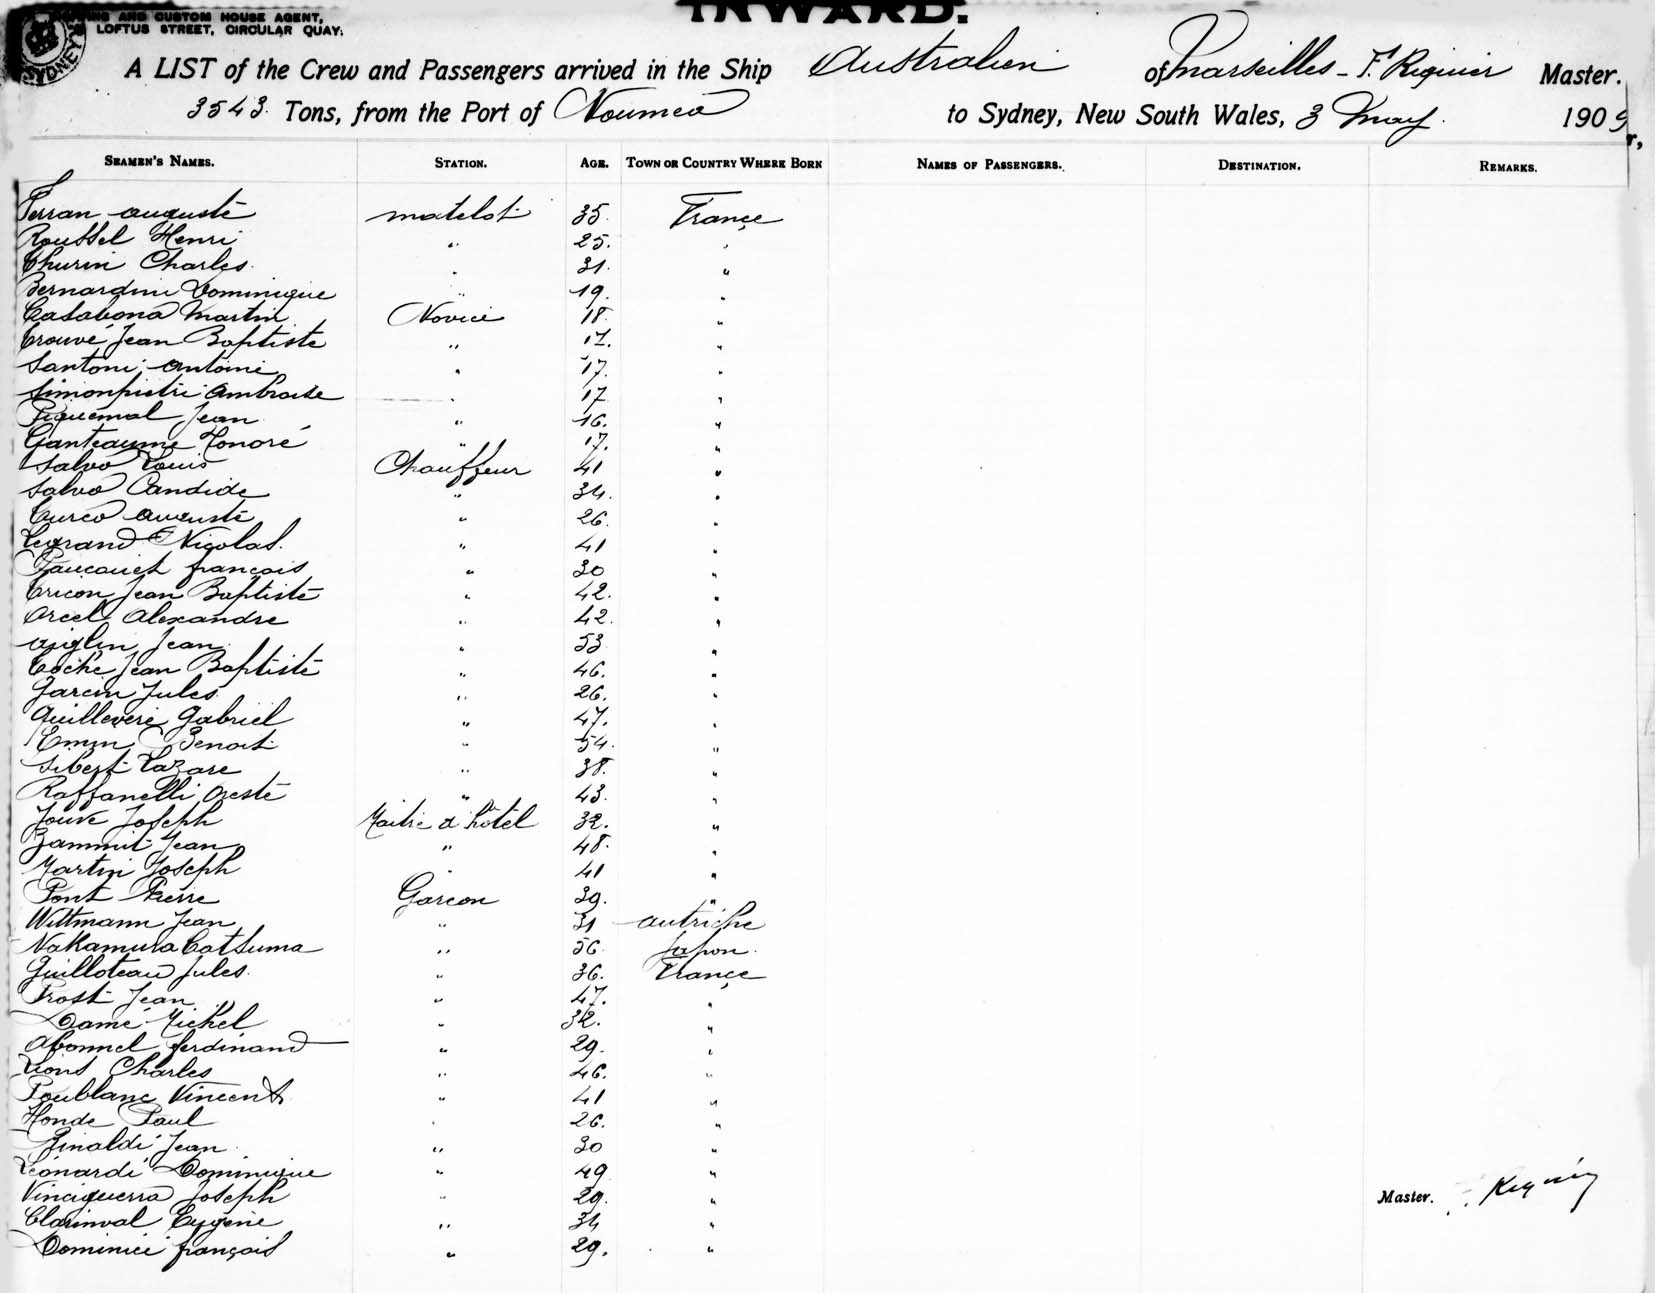 INWARD.
AND CUSTOM HOUSE AGENT,
LOFTUS STREET, CIRCULAR QUAY.
SYDNEY
A LIST of the Crew and Passengers arrived in the Ship Australien of Marseilles - F. Riquier Master.
3543 Tons, from the Port of Noumea to Sydney, New South Wales, 3 May. 1909
SEAMEN'S NAMES. STATION. AGE. TOWN OR COUNTRY WHERE BORN NAMES OF PASSENGERS. DESTINATION. REMARKS.
Ferran Auguste matelot 35. France
Roussel Henri " 25. "
Thurin Charles. " 31. "
Bernardini Dominique " 19. "
Casabona Martin Novice 18. "
Trouvé Jean Baptiste " 17. "
Santoni Antoine " 17. "
Simonpietri Ambroise " 17 "
Piquemal Jean " 16. "
Ganteaume Honoré " 17. "
Salvo Louis Chauffeur 41 "
Salvo Candide " 34. "
Curco Auguste " 26. "
Legrand Nicolas. " 41 "
françois " 30 "
Tricon Jean Baptiste " 42. "
Orcel Alexandre " 42. "
Aiglin Jean " 53 "
Coche Jean Baptiste " 46. "
Garcin Jules " 26. "
Guilleveré Gabriel " 47. "
Benoit " 54. "
Sibert Lazare " 38. "
Raffanelli Oreste " 43. "
Jouve Joseph Maitre d'hôtel 32. "
Zammit Jean " 48. "
Martin Joseph " 41 "
Pont Pierre Garcon 39. "
Wittmann Jean " 31 autriche
Nakamura Catsuma " 56 Japon.
Guilloteau Jules. " 36. France
Prost Jean " 47. "
Damé Michel " 32. "
Abonnel ferdinand " 29. "
Lions Charles " 46. "
Poublanc Vincent " 41 "
Honde Paul " 26. "
Rinaldi Jean " 30 "
Léonardi Dominique " 49 "
Vinciguerra Joseph " 29. " Master. Riquier
Clarinval Eugène " 34 "
Dominici françois " 29. "